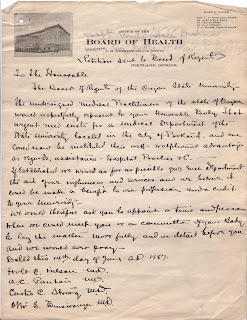 OFFICE OF THE
BOARD OF HEALTH
Petition sent to Board of Regents
PORTLAND, OREGON,
To The Honorable
The Board of Regents of the Oregon State University
The undersigned Medical Practitioners of the State of Oregon
would respectfully represent to your Honorable Body That
urgent need exists for a Medical Department of the
State University located in the city of Portland, and one
could now be instituted here with advantage
as regards, assistance - Hospital Practice &C.
If established we would as far as possible give such Department
the aid of our influence and services and we believe it
could be made a benefit to our profession and a credit
to your University -
We would therefore ask you to appoint a time and place
when we could meet you or a committee of your Body
to lay the matter more fully and in detail before you
and we would ever pray -
Dated this 10th day of June A.D. 1887.
C. Nelson M.D.
A.C. Panton M.D.
Curtis C. Strong M.D.
M.D.